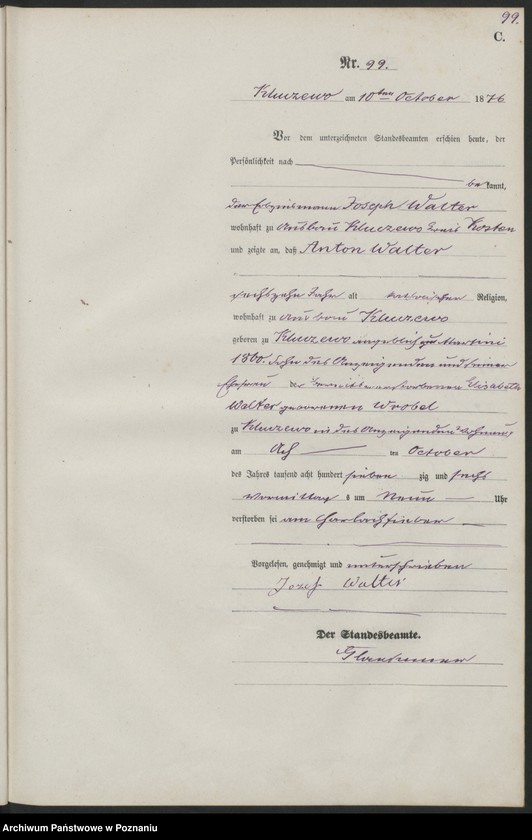 99.
C.
Nr. 99.
Kluczewo am 10ten October 1876
Vor dem unterzeichneten Standesbeamten erschien heute, der
Persönlichkeit nach
bekannt,
der Joseph Walter
wohnhaft zu Ausbau Kluczewo Kreis Kosten
und zeigte an, daß Anton Walter
sechszehn Jahr alt katholischer Religion,
wohnhaft zu Ausbau Kluczewo
geboren zu Kluczewo angeblich zu Martini
1860. Sohn des Anzeigenden und seiner
Ehefrau der verstorbenen Elisabeth
Walter geborenen Wrobel
zu Kluczewo in des Anzeigenden Wohnung
am Ach ten October
des Jahres tausend acht hundert sieben zig und sechs
Vormittag s um Neun Uhr
verstorben sei am Scharlachfieber
Vorgelesen, genehmigt und unterschrieben
Jozef Walter
Der Standesbeamte.
Archiwum Państwowe w Poznaniu